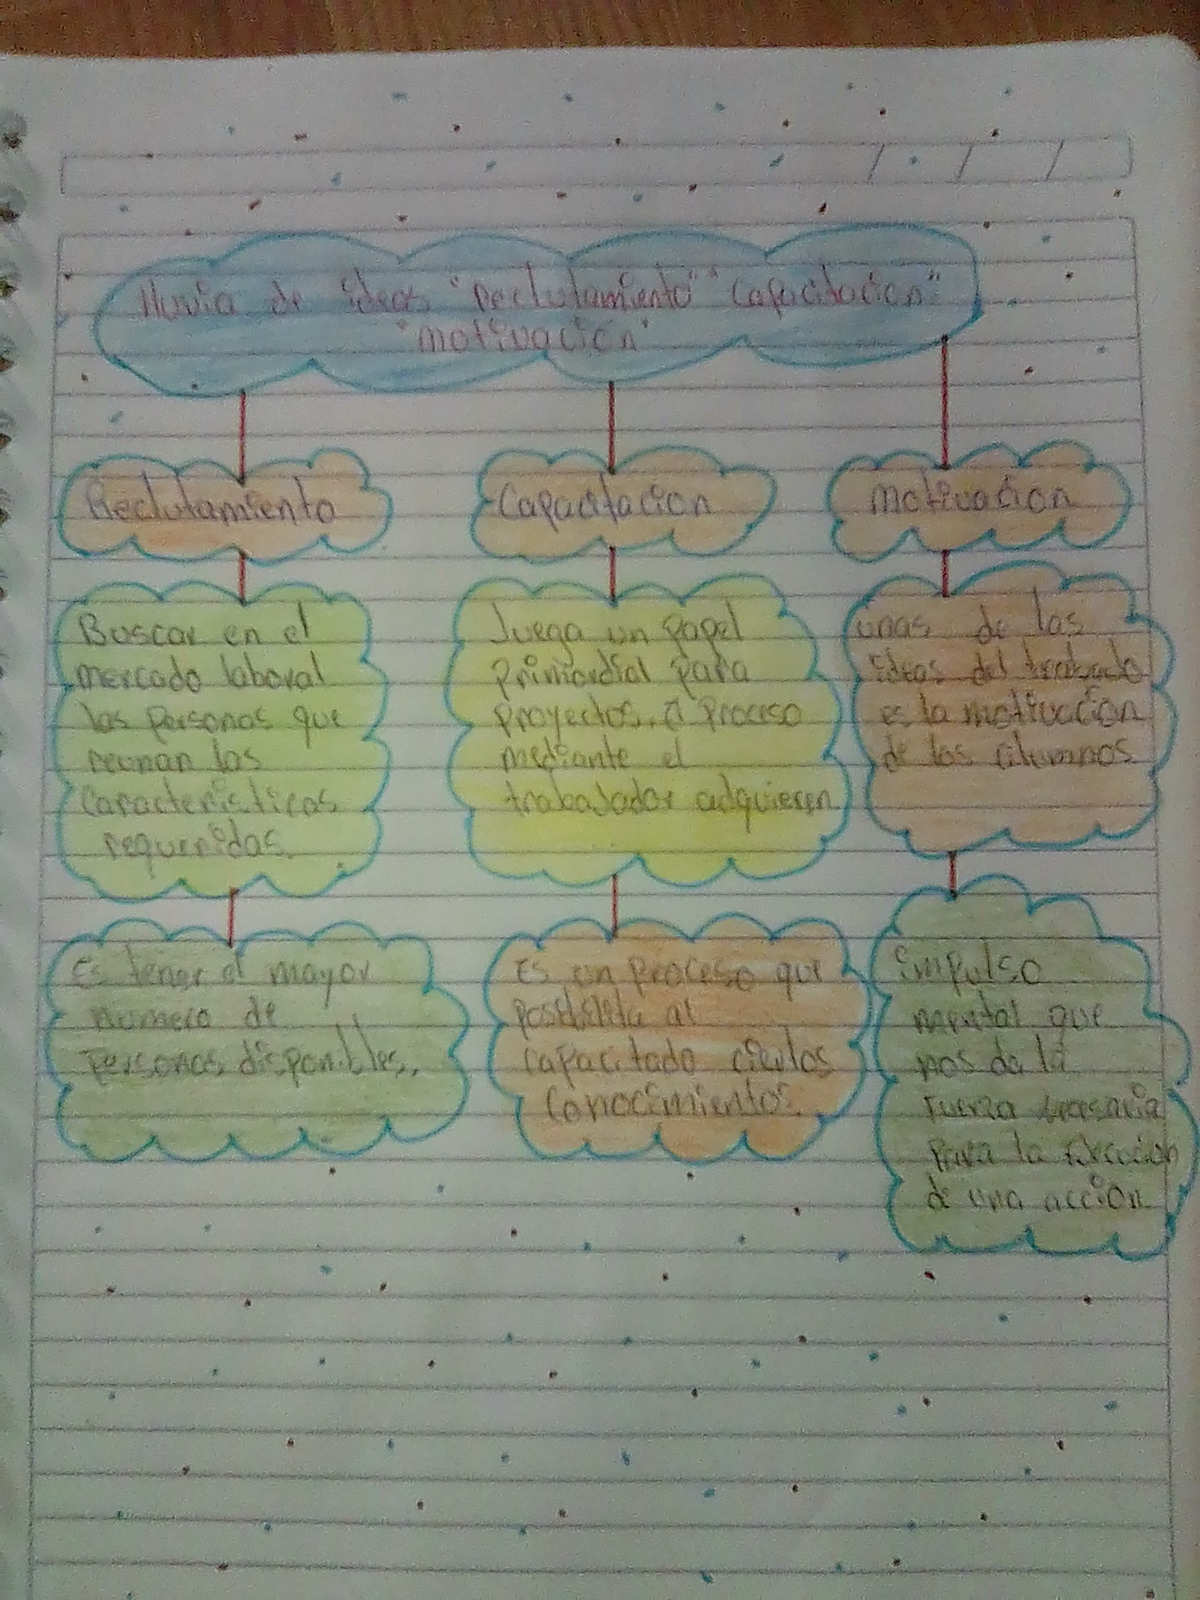 lluvia de ideas "Reclutamiento" "Capacitacion"
"motivación"
Reclutamiento
Buscar en el
mercado laboral
las personas que
reunan las
Caracteristicas
requeridas.
Es tener el mayor
numero de
Personas disponibles.
Capacitacion
Juega un papel
Primordial para
proyectos. o proceso
mediante el
trabajador adquieren
Es un proceso que
posibilita al
capacitado ciertos
Conocimientos.
Motivacion
unas de las
ideas del
es la motivacion
de los alumnos
impulso
mental que
nos da la
Fuerza
para la
de una acción